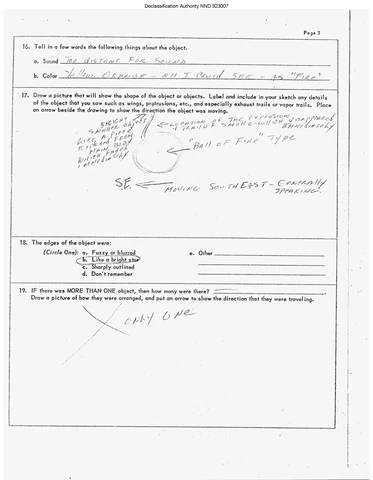 Declassification Authority NND 923007
Page 3
16. Tell in a few words the following things about the object.
a. Sound Too distant for sound
b. Color Yellow Orange - All I could see - as "Fire"
17. Draw a picture that will show the shape of the object or objects. Label and include in your sketch any details
of the object that you saw such as wings, protrusions, etc., and especially exhaust trails or vapor trails. Place
an arrow beside the drawing to show the direction the object was moving.
BRIGHT
SMOKE OBJECT
LIKE A PIECE
FROM
MAIN BODY
WHICH FADED
IMMEDIATELY
LOCATION OF THE EXPLOSION
& TRAIL OF SMOKE - WHICH DISAPPEARED
IMMEDIATELY
"BALL OF FIRE" TYPE
SE.
MOVING SOUTHEAST - GENERALLY
SPEAKING.
18. The edges of the object were:
(Circle One): a. Fuzzy or blurred
b. Like a bright star
c. Sharply outlined
d. Don't remember
e. Other
19. IF there was MORE THAN ONE object, then how many were there?
Draw a picture of how they were arranged, and put an arrow to show the direction that they were traveling.
ONLY ONE